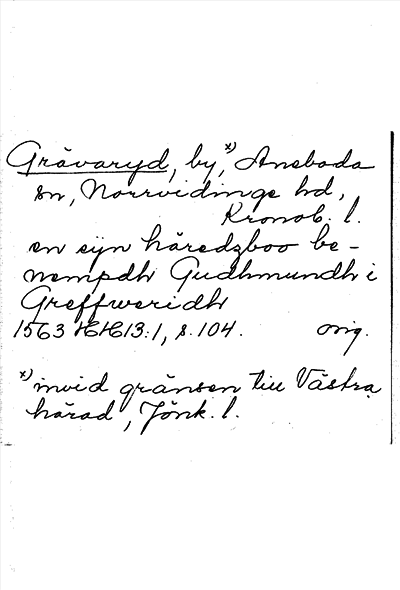 Grävaryd, by,ˣ⁾ Aneboda
sn, Norrvidinge hd,
Kronob. l.
en syn häredzboo be-
nempdh Gudhmundh i
Greffweridh
1563 HH 13:1, s. 104. orig.
ˣ⁾ invid gränsen till Västra
härad, Jönk. l.